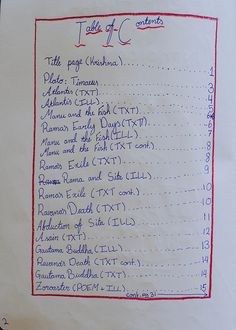 Table of Contents
Title page (Krishna)............ 1
Plato: Timaeus
Atlantis (TXT)............ 3
Atlantis (ILL)............ 4
Manu and the Fish (TXT)............ 5
Rama's Early Days (TXT)............ 6
Manu and the Fish (ILL)............ 7
Manu and the Fish (TXT cont.)............ 8
Rama's Exile (TXT)............ 8
Rama and Sita (ILL)............ 9
Rama's Exile (TXT cont.)............ 10
Ravana's Death (TXT)............ 10
Abduction of Sita (ILL)............ 11
(TXT)............ 12
Gautama Buddha (ILL)............ 13
Ravana's Death (TXT cont.)............ 14
Gautama Buddha (TXT)............ 14
Zoroaster (POEM + ILL)............ 15
cont. pg 31
2